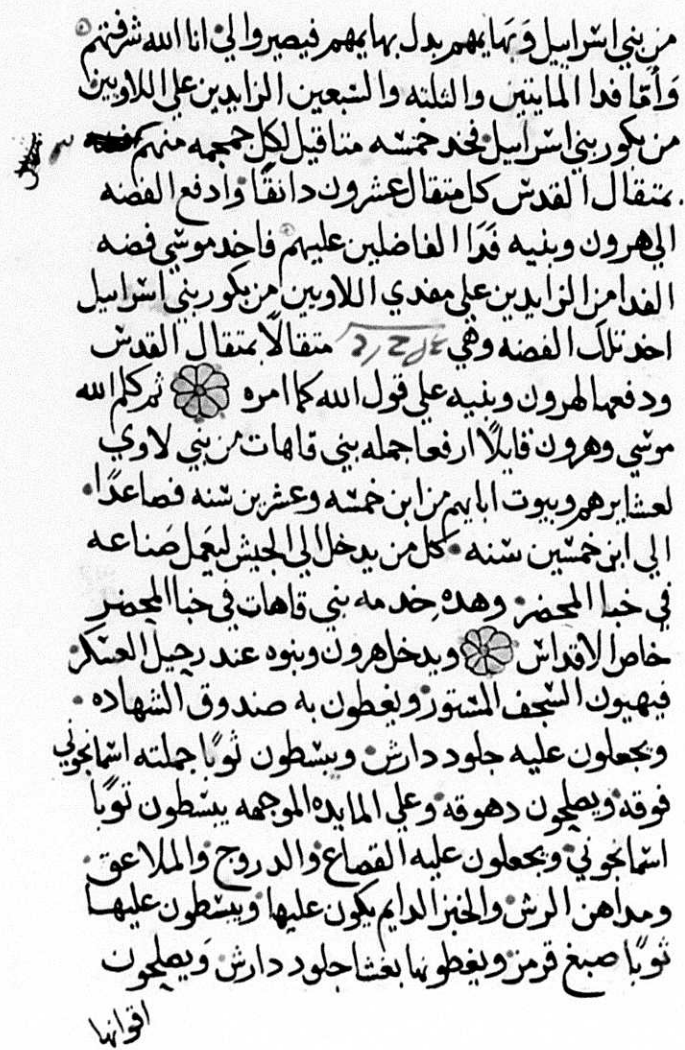 من بني اسراييل وبهايمهم بدل بهايمهم فيصيروا لي انا الله شرفتهم
وَأمّا فدا المايتين والثلثه والسّبعين الزايدين علي اللاويين
من بكور بني اسراييل فخد خمسه مثاقيل لكل جمجمه منهم
بمثقال القدس كل مثقال عشرون دانقًا وَادفع الفضه
الي هرون وبنيه فدَا الفاضلين عليهم فاخد موسي فضه
الفدا من الزايدين علي مفدي اللاويين من بكور بني اسراييل
اخد تلك الفضه وهي مثقالًا بمثقال القدس
ودفعها لهرون وبنيه علي قول الله كما امره ثم كلم الله
موسي وهرون قايلًا ارفعا جمله بني قاهات من بني لاوي
لعشايرهم وبيوت ابايهم من ابن خمسه وعشرين سنه فصاعدًا
الي ابن خمسين سنه كل من يدخل الي الجيش ليعمل صناعه
في خبا المحضر وهده خدمه بني قاهات في خبا المحضر
خاص الاقداس ويدخل هرون وبنوه عند رحيل العسكر
فيهيون السّجف المستور ويغطون به صندوق الشهاده
ويجعلون عليه جلود دارش ويبسطون ثوبًا جملته اسمانجوني
فوقه ويصلحون دهوقه وعلي المايده الموجهه يبسطون ثوبًا
اسمانجوني ويجعلون عليه القصاع والدروج والملاعق
ومداهن الرش والخبز الدايم يكون عليها ويبسطون عليها
ثوبًا صبغ قرمز ويغطونها بغشا جلود دارش وَيصلحون
اقوانها